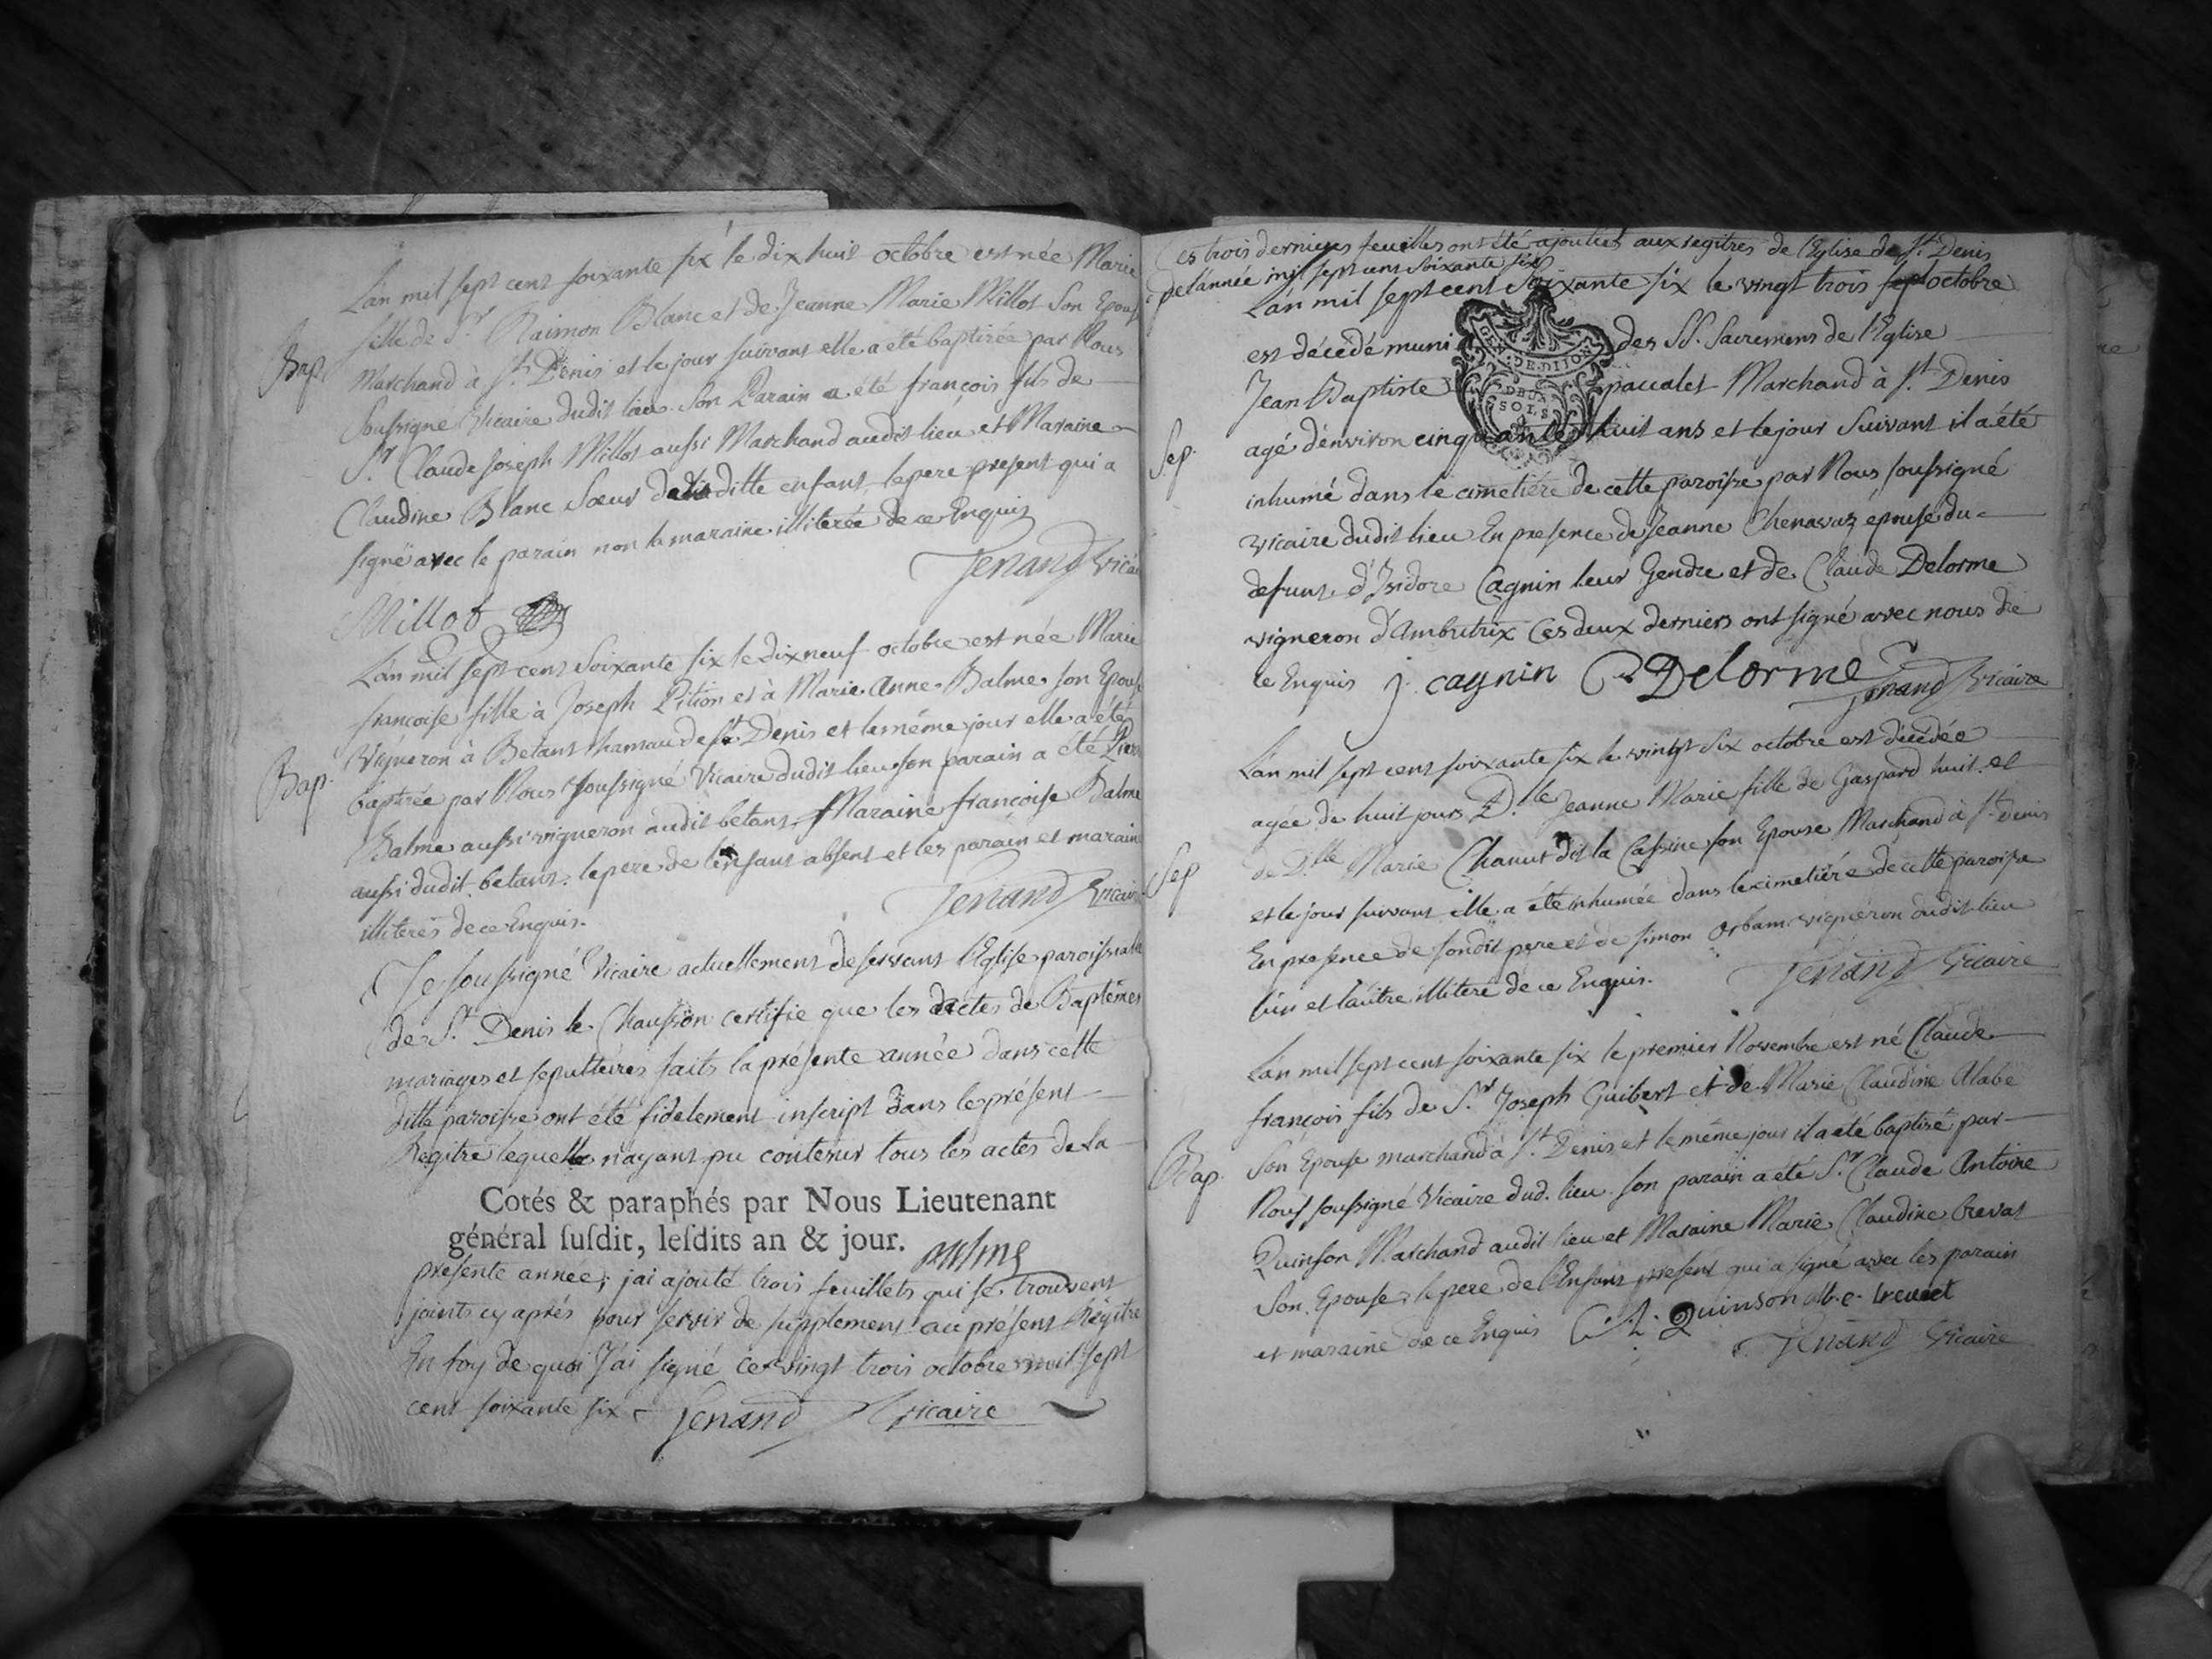 L'an mil sept cent soixante six le dix huit octobre est née Marie
fille de Sr Raimon Blanc et de Jeanne Marie Millot Son Epouse
Bap.
Marchand à St Denis et le jour suivant elle a été baptisée par Nous
Soussigné Vicaire dudit lieu. Son Parain a été françois fils de
Sr Claude Joseph Millot aussi Marchand audit lieu et Maraine
Claudine Blanc Sœur de la ditte enfant, le pere present qui a
signé avec le parain non la maraine illiterée de ce Enquis
Jenand Vicai
Millot
L'an mil sept cent Soixante six le dix neuf octobre est née Marie
francoise fille à Joseph Pition et à Marie Anne Balme son Epouse
Vigneron à Betant hamau de St Denis et le même jour elle a été
Bap.
baptisée par Nous Soussigné Vicaire dudit lieu son parain a été
Balme aussi vigneron audit betant Maraine françoise Balme
aussi dudit betant. le pere de l'enfant absent et les parain et marain
illiterés de ce Enquis.
Jenand Vicair
Je soussigné Vicaire actuellement desservant l'Eglise paroissialle
de St Denis le Chausson certifie que les actes de Baptêmes
mariages et sepultures faits la présente année dans cette
ditte paroisse ont été fidelement inscript dans le présent
Regitre lequelle n'ayant pu contenir tous les actes de la
Cotés & paraphés par Nous Lieutenant
général susdit, lesdits an & jour.
présente année, j'ai ajouté trois feuillets qui se trouvent
joints cy aprés pour servir de supplement au présent Régitre
En foy de quoi J'ai signé ce vingt trois octobre mil sept
cent soixante six Jenand Vicaire
Ces trois dernieres feuilles ont été ajoutées aux regitres de l'Eglise de St Denis
de l'année mil sept cent soixante six
L'an mil sept cent Soixante six le vingt trois octobre
est décédé muni des SS. Sacremens de l'Eglise
GEN. DE DIJON
DEUX
SOLS
Jean Baptiste paualet Marchand à St Denis
agé d'environ cinquante huit ans et le jour Suivant il a été
Sep.
inhumé dans le cimetiére de cette paroisse par Nous soussigné
vicaire dudit lieu En presence de Jeanne Chenavaz épouse du
defunt d'Isidore Cagnin leur Gendre et de Claude Delorme
vigneron d'Ambutrix Ces deux derniers ont signé avec nous de
ce Enquis j. cagnin C Delorme Jenand Vicaire
L'an mil sept cent soixante six le vingt six octobre est décédée
agée de huit jours D.lle Jeanne Marie fille de Gaspard huit et
Sep
de D.lle Marie Chanut dit la Cassine son Epouse Marchand à St Denis
et le jour suivant elle a été inhumée dans le cimetiére de cette paroisse
En presence de sondit pere et de simon Orbam vigneron dudit lieu
l'un et l'autre illiteré de ce Enquis. Jenand Vicaire
L'an mil sept cent soixante six le premier Novembre est né Claude
françois fils de Sr Joseph Guibert et de Marie Claudine Alabe
Bap.
Son Epouse marchand à St Denis et le même jour il a été baptisé par
Nous soussigné Vicaire dud. lieu. son parain a été Sr Claude Antoine
Quinson Marchand audit lieu et Maraine Marie Claudine
Son Epouse, le pere de l'Enfant present qui a signé avec les parain
et maraine de ce Enquis C. A. Quinson
Jenand Vicaire